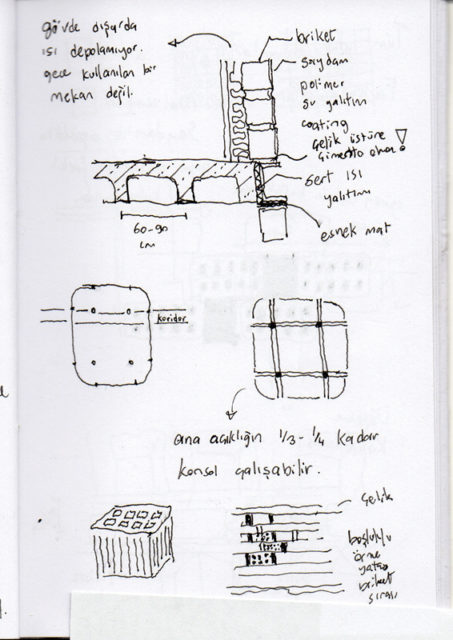 gövde dışarda
ısı depolamıyor.
gece kullanılan bir
mekan değil.
briket
saydam
polimer
su yalıtım
coating
çelik üstüne
çimento olmaz!
sert ısı
yalıtım
esnek mat
60-90
cm
koridor
ana açıklığın 1/3-1/4 kadar
konsol çalışabilir.
çelik
boşluklu
örme
yatay
briket
sırası